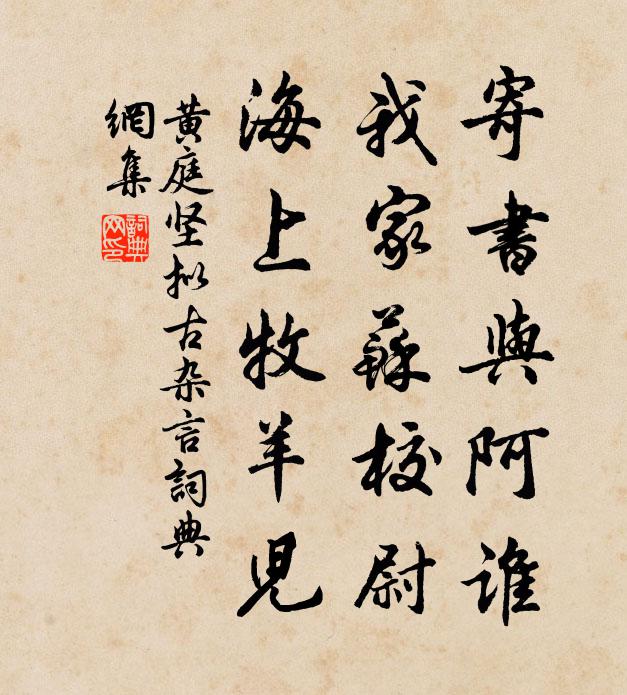 寄書與阿誰
我家蘇校尉
海上牧羊児
黄庭坚拟古杂言詞典
網集
詞典
网印